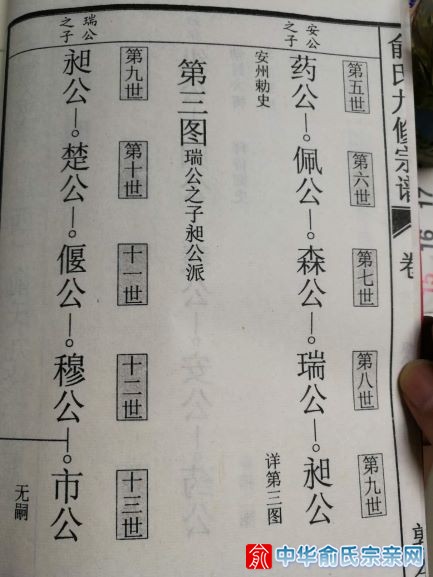 俞氏九修宗谱
卷
第五世
第六世
第七世
第八世
第九世
安公之子
药公—佩公—森公—瑞公—昶公
安州勅史
详第三图
第三图 瑞公之子昶公派
第九世
第十世
十一世
十二世
十三世
瑞公之子
昶公—楚公—偃公—穆公—市公
无嗣
15 16 17
俞 中华俞氏宗亲网